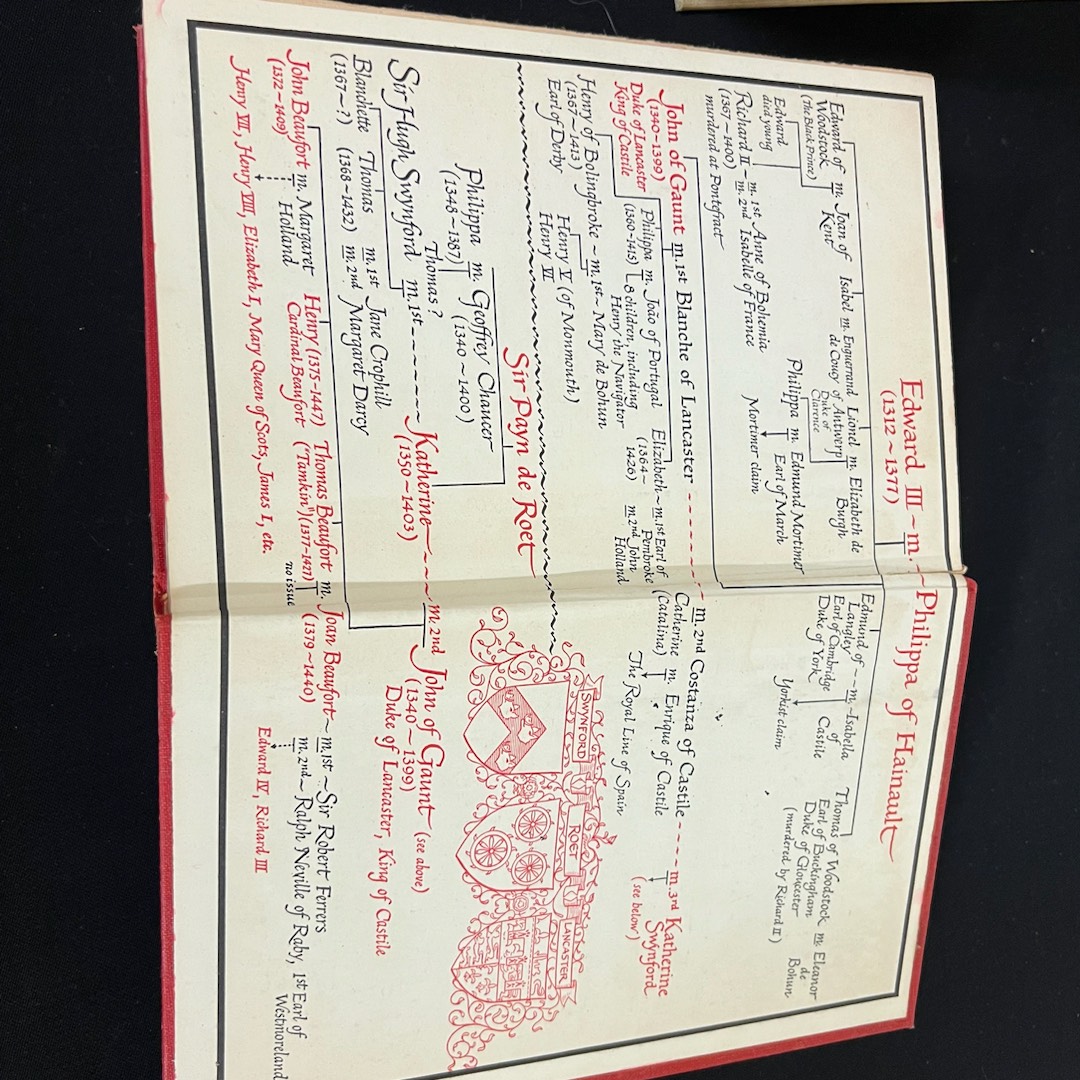 Edward III ~ m. ~ Philippa of Hainault
(1312 ~ 1377)
Edward of m. Joan of
Woodstock Kent
(The Black Prince)
Isabel m. Enguerrand
de Coucy
Lionel m. Elizabeth de
of Antwerp Burgh
Duke of
Clarence
Edmund of -- m. ~ Isabella
Langley of
Earl of Cambridge Castile
Duke of York
Yorkist claim
Thomas of Woodstock m. Eleanor
Earl of Buckingham de
Duke of Gloucester Bohun
(murdered by Richard II)
Edward
died young
Richard II ~ m. 1st Anne of Bohemia
(1367 ~ 1400) m. 2nd Isabelle of France
murdered at Pontefract
Philippa m. Edmund Mortimer
Earl of March
Mortimer claim
John of Gaunt m. 1st Blanche of Lancaster ------- m. 2nd Costanza of Castile ---- m. 3rd Katherine
(1340~1399) Swynford
Duke of Lancaster (see below)
King of Castile
Philippa m. João of Portugal
(1360-1415) 8 children, including
Henry the Navigator
Elizabeth ~ m. 1st Earl of
(1364- Pembroke
1426) m. 2nd John
Holland
Catherine m. Enrique of Castile
(Catalina)
The Royal Line of Spain
Henry of Bolingbroke ~ m. 1st ~ Mary de Bohun
(1367~1413)
Earl of Derby
Henry V (of Monmouth)
Henry VI
Sir Payn de Roet
SWYNFORD
ROET
LANCASTER
Philippa m. Geoffrey Chaucer
(1348~1387) (1340 ~ 1400)
Thomas?
Sir Hugh Swynford m. 1st ----- Katherine ~--~ m. 2nd John of Gaunt (see above)
(1350~1403) (1340 ~ 1399)
Duke of Lancaster, King of Castile
Blanchette Thomas m. 1st Jane Crophill
(1367~?) (1368~1432) m. 2nd Margaret Darcy
John Beaufort m. Margaret
(1372~1409) Holland
Henry (1375-1447)
Cardinal Beaufort
Thomas Beaufort m.
("Tamkin") (1377-1427) no issue
Joan Beaufort ~ m. 1st ~ Sir Robert Ferrers
(1379~1440) m. 2nd ~ Ralph Neville of Raby, 1st Earl of
Westmoreland
Henry VII, Henry VIII, Elizabeth I, Mary Queen of Scots, James I, etc.
Edward IV, Richard III